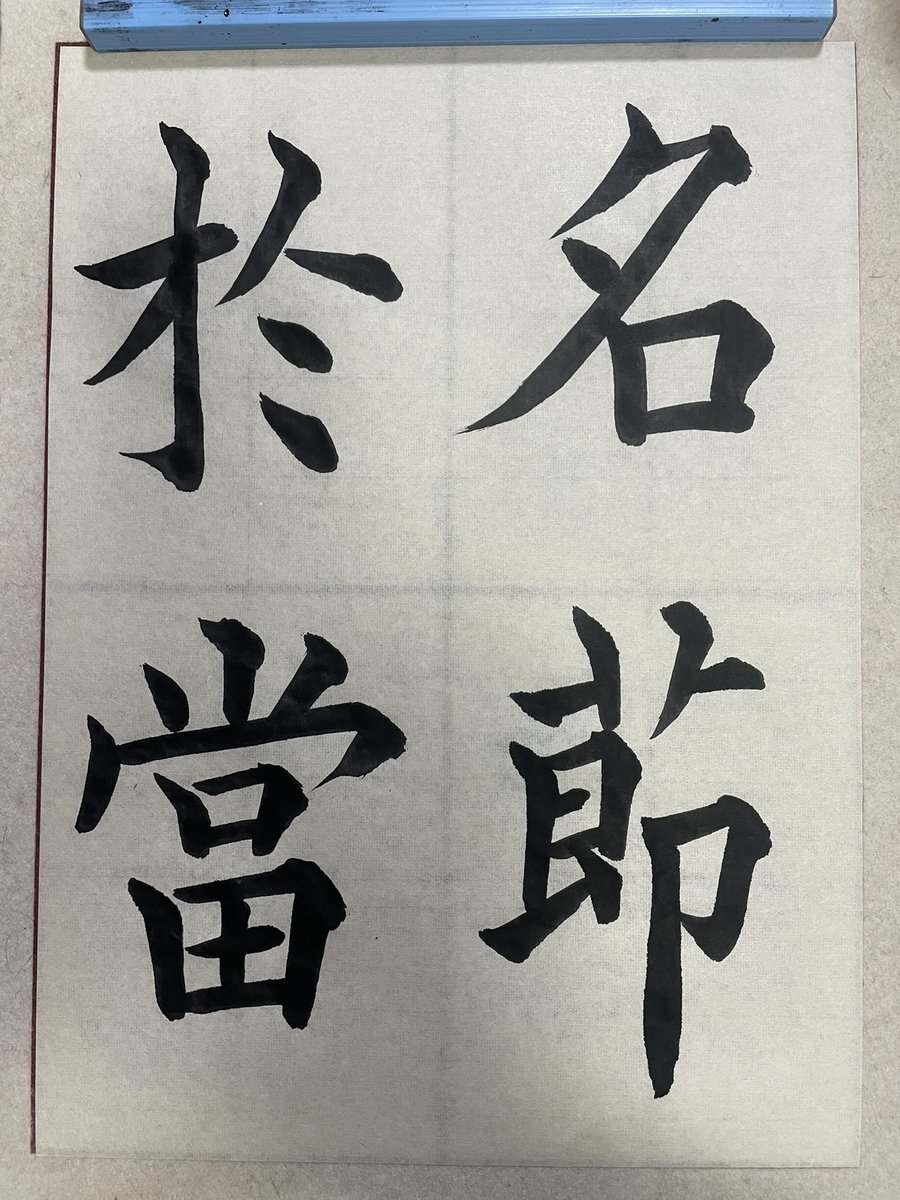 名節
於當